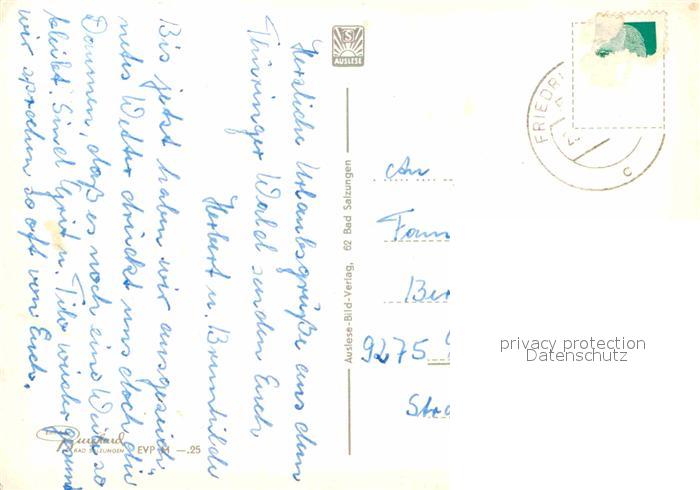 Herzliche Urlaubsgrüße aus dem
Thüringer Wald senden Euch
Herbert u. Brunhilde
Bis jetzt haben wir ausgezeich-
netes Wetter drückt uns doch die
Daumen, daß es noch eine Weile so
bleibt. Sind Grit u. Tilo wieder gesund
wir sprechen so oft von Euch.
S
AUSLESE
Auslese-Bild-Verlag, 62 Bad Salzungen
BAD SALZUNGEN
EVP M —.25
An
Fam
Ber
9275
Str
FRIEDRI
c
privacy protection
Datenschutz